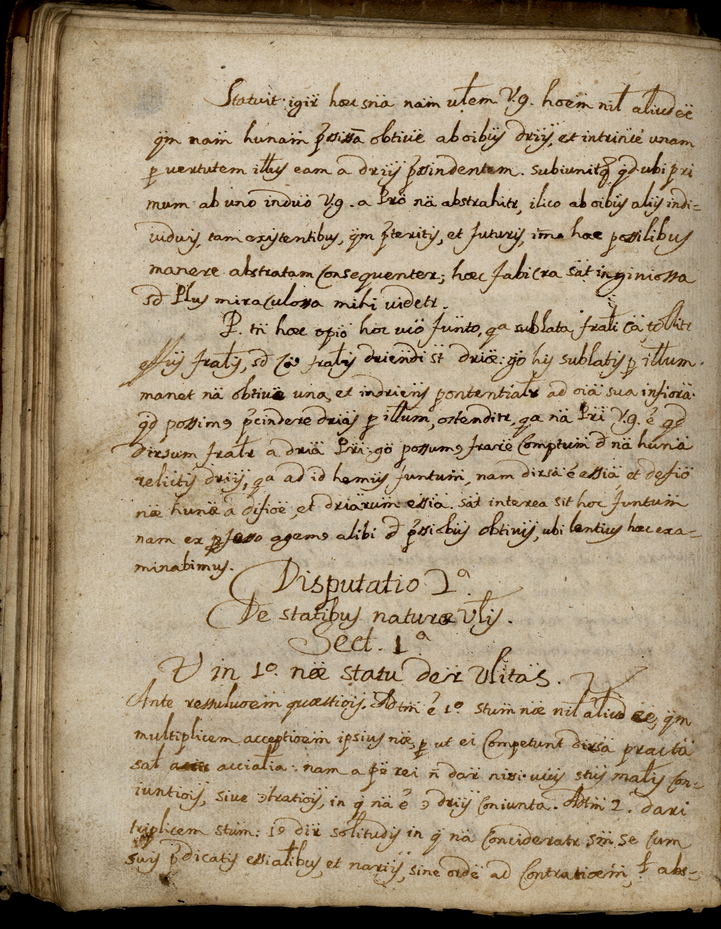 Statuit igir̃ hæc snã nam̃ ułem V.g. hoem̃ nil aliud ee
qm̃ nam̃ hunam̃ obtiuẽ ab oibus driis, et intrincẽ unam
p vertutem illius eam a driis p̃sindentem. subiunitq̃ qd̃ ubi pri
mum ab uno induo V.g. a Prõ nã abstrahitr, ilico ab oibus aliis indi-
viduis, tam existentibus, qm̃ p̃teritis, et futuris, imo hæc possilibus
manere abstratam consequenter; hæc fabicra sat inginiossa
sd̃ Plus miraculossa mihi videtr.
P. tñ hæc opiõ hoc uiõ funto, qa sublata frałi cã tollitr
effus frałis, sd̃ frałis driendi st̃ driæ: go his sublatis p illum
manet nã obtiuẽ una, et indriens pontentialr ad oiã sua infiora
qd̃ possimꝯ p̃cindere drias p illum, ostenditr, qa nã Pri V.g. ẽ qd̃
dirsum frałr a driã Pri: go possumꝯ frarẽ comptum d̃ nã hunã
relictis driis, qa ad id hemus funtum̃, nam dirsã ẽ essiã et defiõ
næ hunæ a difiõe, et driarum essia. sat interea sit hoc funtum̃
nam ex p̃fesso agemꝯ alibi d̃ p̃ssiõbus obtiuis, ubi lentius hæc exa-
minabimus.
Disputatio 2ª
De statibus naturæ Vłis.
Sect. 1ª
V in 1º. næ statu detr Vlitas.
Ante ressuluoem̃ quæstiois. Adtm̃ ẽ 1º stum̃ næ nil aliud ee, qm̃
multiplicem acceptioem̃ ipsius næ, p ut ei competunt dirsã prætã
sał accialia: nam a p̃e rei ñ datr nisi unus stus małis con-
iuntiois, siue ꝯtratiois, in q̃ nã ẽ ꝯ driis coniunta. Adtm̃ 2. dari
triplicem stum: 1º dir̃ solitudis in q̃ nã concideratr sm̃ se cum
suis p̃dicatis essialibus, et nariis, sine ordẽ ad contratioem̃, ł abs-